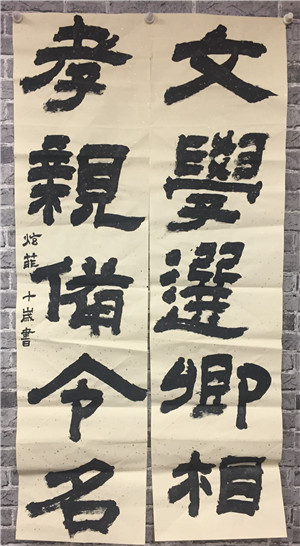 文學選卿相
孝親備令名
炫菲 十歲書